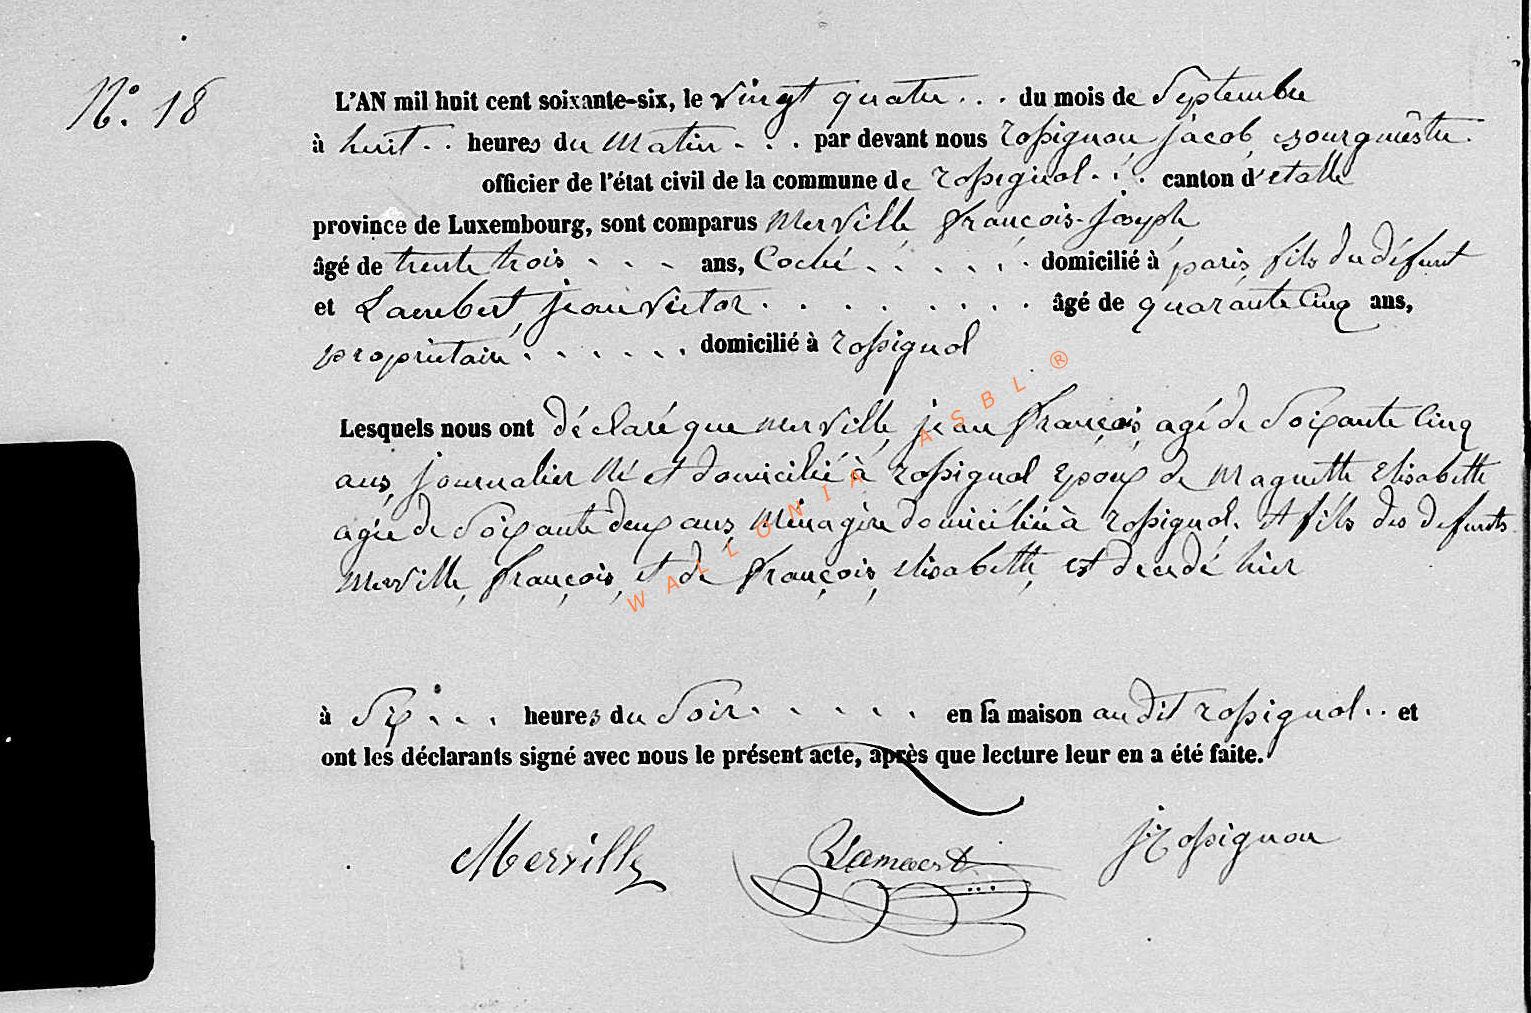 N.° 18
L'AN mil huit cent soixante-six, le vingt quatre . . . du mois de Septembre
à huit . . heures du Matin . . . par devant nous rossignon, jacob, bourgmestre .
officier de l'état civil de la commune de rossignol . . . canton d'etalle
province de Luxembourg, sont comparus Merville françois-joseph,
âgé de trente trois . . . . ans, Coché . . . . . . domicilié à paris, fils du défunt
et Lambert, jean victor . . . . . . . . . âgé de quarante cinq ans,
proprietaire . . . . . . . domicilié à rossignol
Lesquels nous ont déclaré que merville, jean françois, agé de Soixante cinq
ans, journalier né et domicilié à rossignol Epoux de Maguette elisabeth
agée de Soixante deux ans, Ménagère domiciliée à rossignol. et fils des defunts
Merville, françois, et de françois, elisabeth, est decedé hier
à Six . . . heures du Soir . . . . . en sa maison audit rossignol . . et
ont les déclarants signé avec nous le présent acte, après que lecture leur en a été faite.
Merville Lambert J Rossignon
WALLONIA ASBL ®